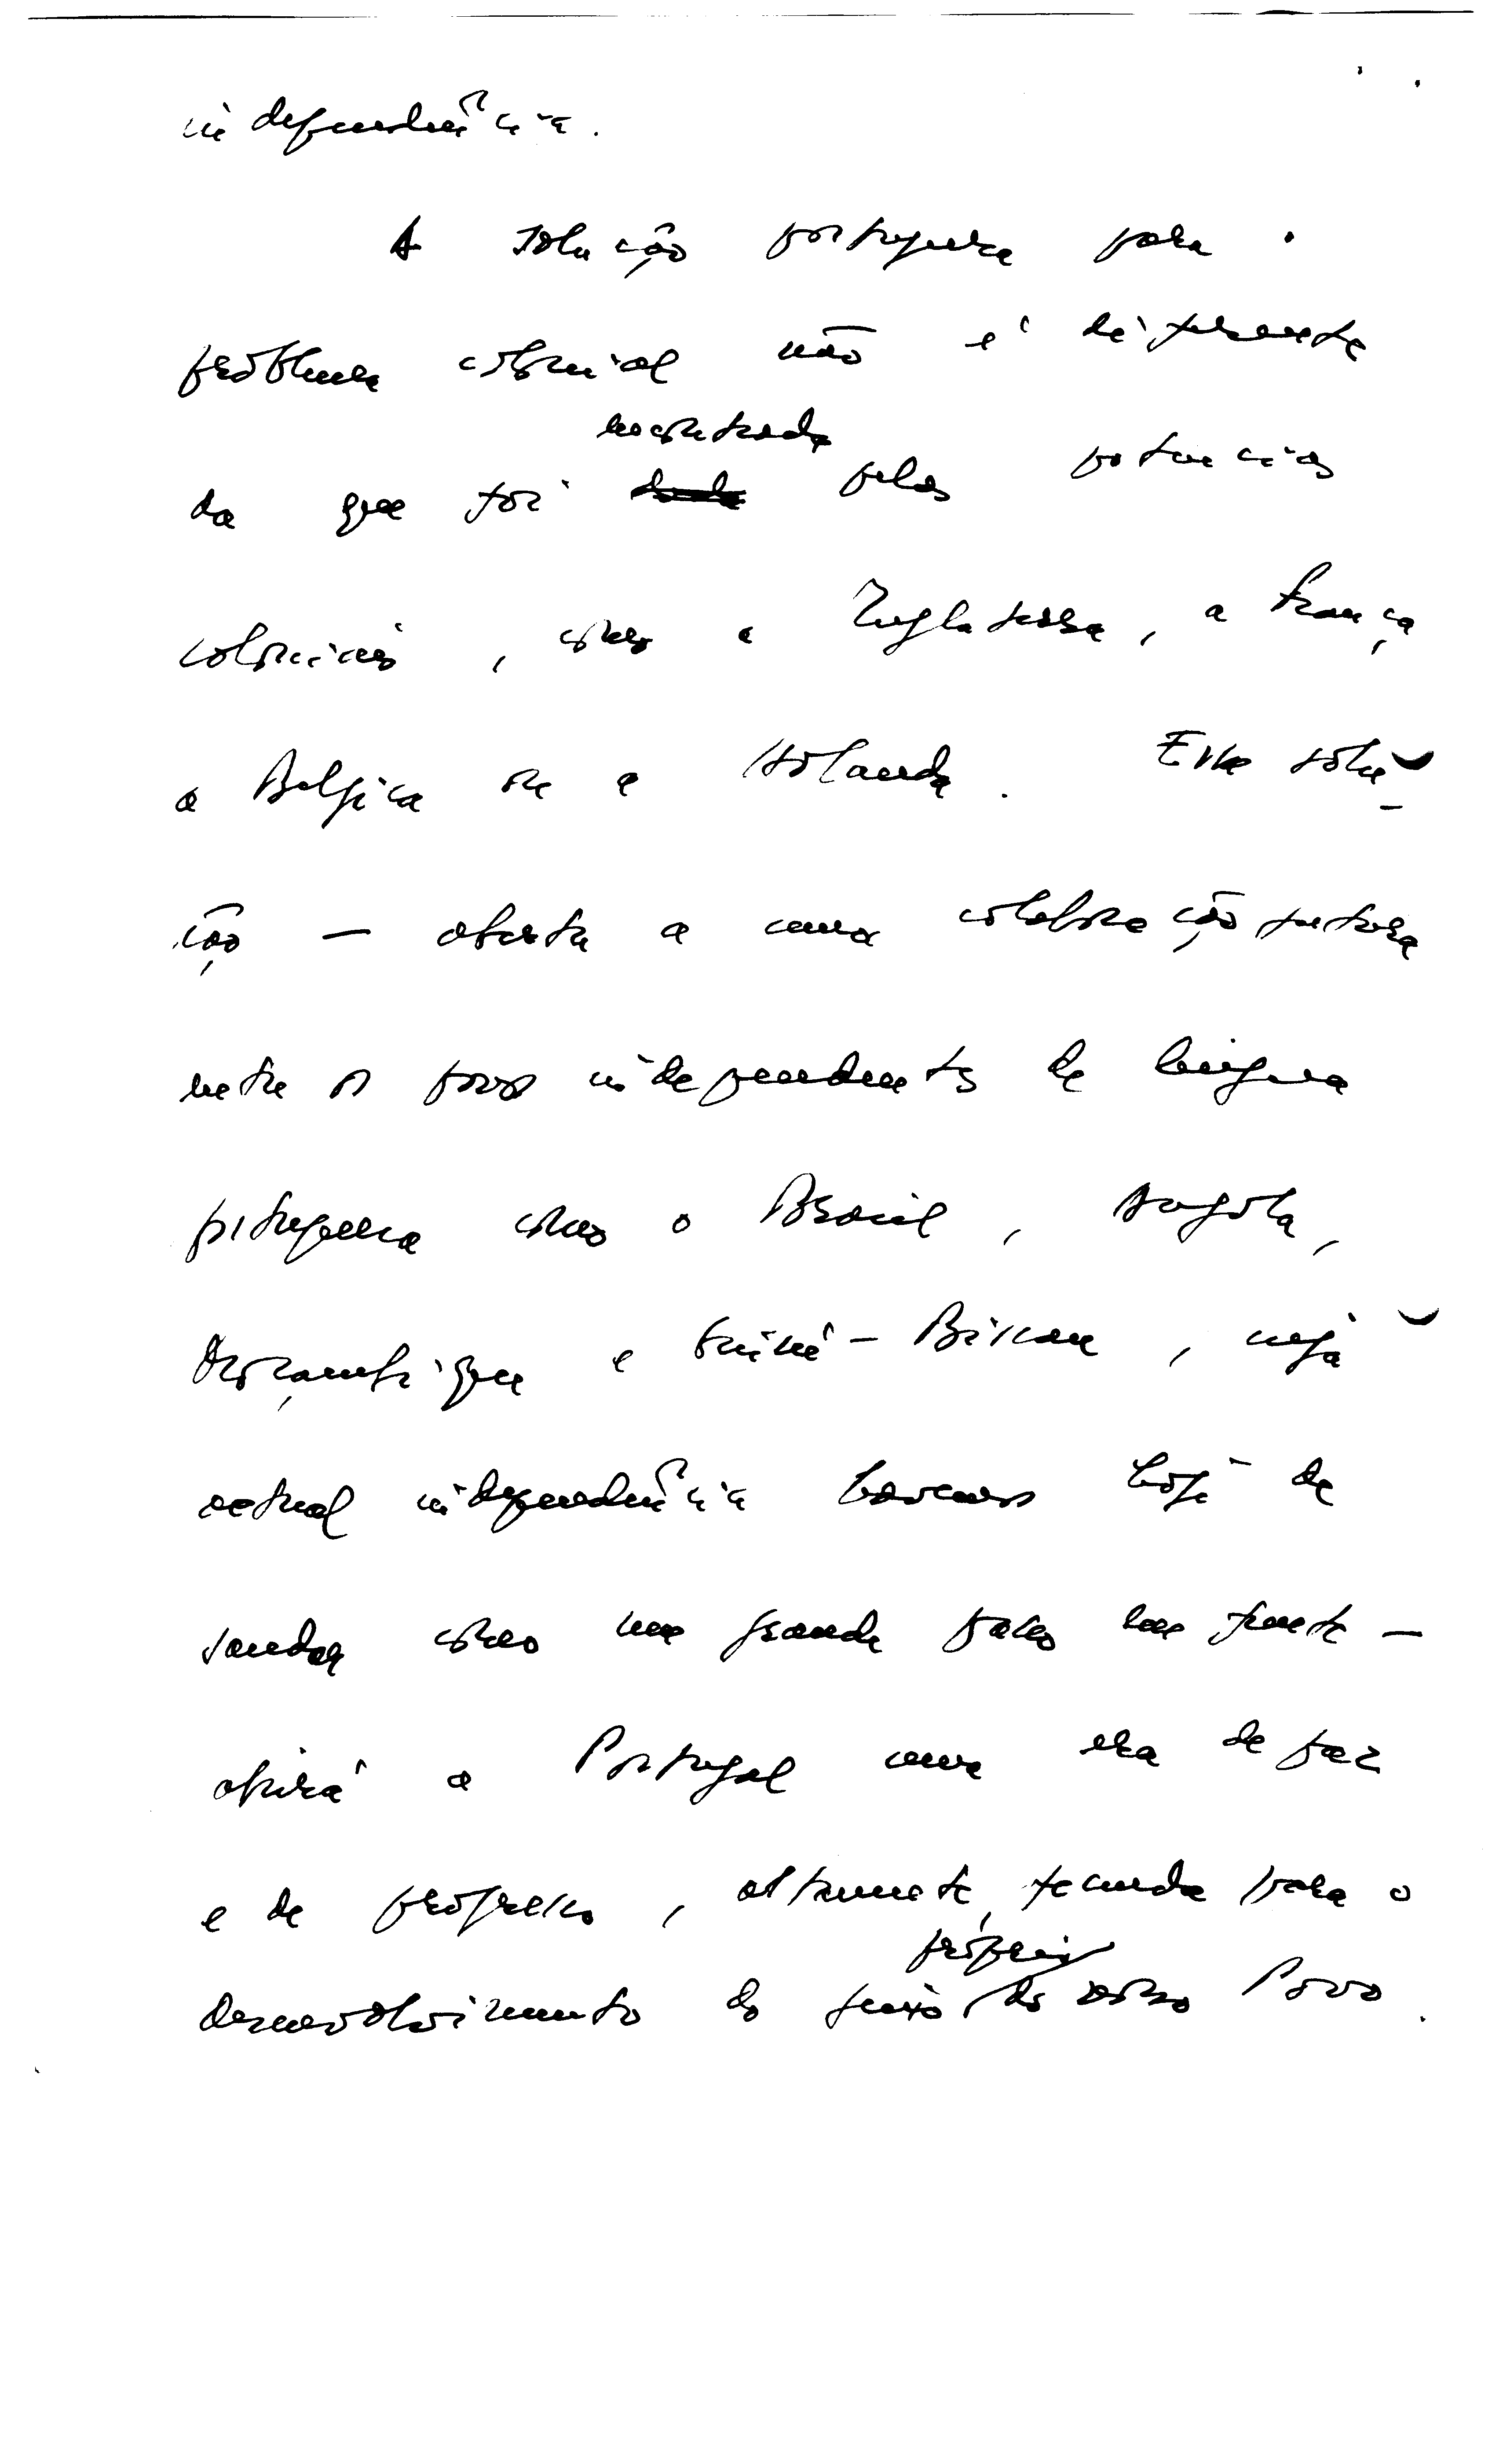 independência.
A solução portuguesa para o
problema colonial não é diferente
encontrada
da que foi dada pelas potências
coloniais, como a Inglaterra, a França
a Belgica ou a Holanda. Esta solu-
ção — aberta a uma colaboração futura
entre os povos independentes de língua
portuguesa como o Brasil, Angola,
Moçambique e Guiné-Bissau, cuja
actual independência havemos hoje de
saudar como um grande passo em frente —
abrirá a Portugal uma era de paz
e de progresso, altamente fecunda para o
próprio
desenvolvimento do génio do nosso Povo.